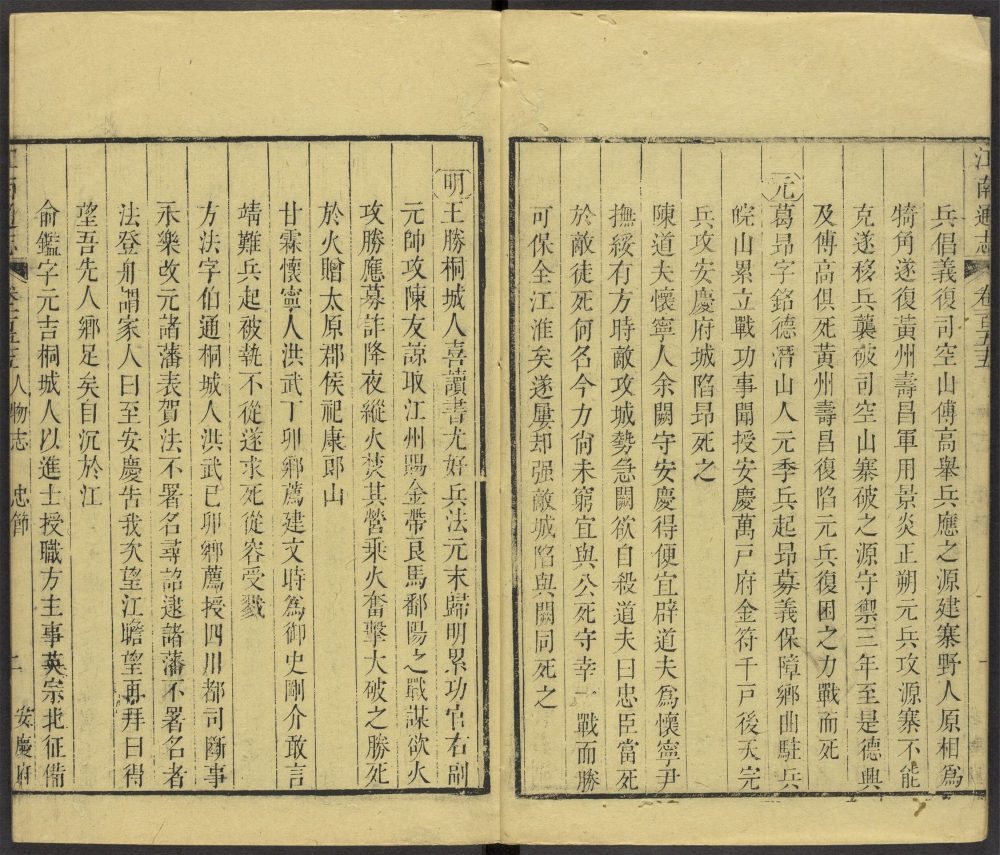 江南通志 卷一百五十五
兵倡義復司空山傅高舉兵應之源建寨野人原相為
犄角遂復黃州壽昌軍用景炎正朔元兵攻源寨不能
克遂移兵襲破司空山寨破之源守禦三年至是德興
及傅高俱死黃州壽昌復陷元兵復困之力戰而死
元葛昂字銘德潛山人元季兵起昂募義保障鄉曲駐兵
皖山累立戰功事聞授安慶萬戶府金符千戶後天完
兵攻安慶府城陷昂死之
陳道夫懷寧人余闕守安慶得便宜辟道夫為懷寧尹
撫綏有方時敵攻城勢急闕欲自殺道夫曰忠臣當死
於敵徒死何名今力尙未窮宜與公死守幸一戰而勝
可保全江淮矣遂屢却强敵城陷與闕同死之
明王勝桐城人喜讀書尤好兵法元末歸明累功官右副
元帥攻陳友諒取江州賜金帶良馬鄱陽之戰謀欲火
攻勝應募詐降夜縱火焚其營乘火奮擊大破之勝死
於火贈太原郡侯祀康郎山
甘霖懷寧人洪武丁卯鄉薦建文時為御史剛介敢言
靖難兵起被執不從遂求死從容受戮
方法字伯通桐城人洪武己卯鄉薦授四川都司斷事
永樂改元諸藩表賀法不署名尋詔逮諸藩不署名者
法登舟謂家人曰至安慶告我次望江瞻望再拜曰得
望吾先人鄉足矣自沉於江
俞鑑字元吉桐城人以進士授職方主事英宗北征備
江南通志 卷一百五十五 人物志 忠節 二 安慶府